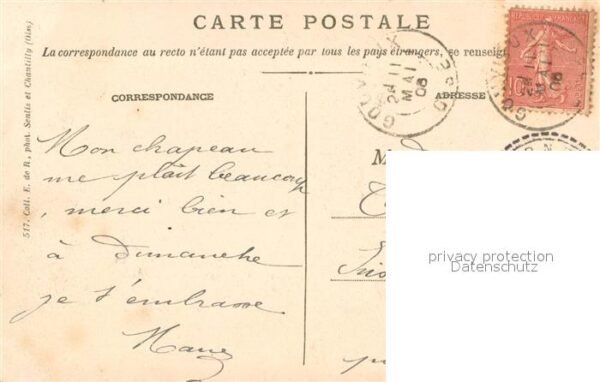 CARTE POSTALE
La correspondance au recto n'étant pas acceptée par tous les pays étrangers, se renseign
CORRESPONDANCE
ADRESSE
517. Coll. E. de R., phot. Senlis et Chantilly (Oise)
GOUVIEUX
11
MAI
06
OISE
GOUVIEUX
11
MAI
06
RÉPUBLIQUE FRANÇAISE
10
Mon chapeau
me plaît beaucoup
, merci bien et
à Dimanche
je t'embrasse
privacy protection
Datenschutz